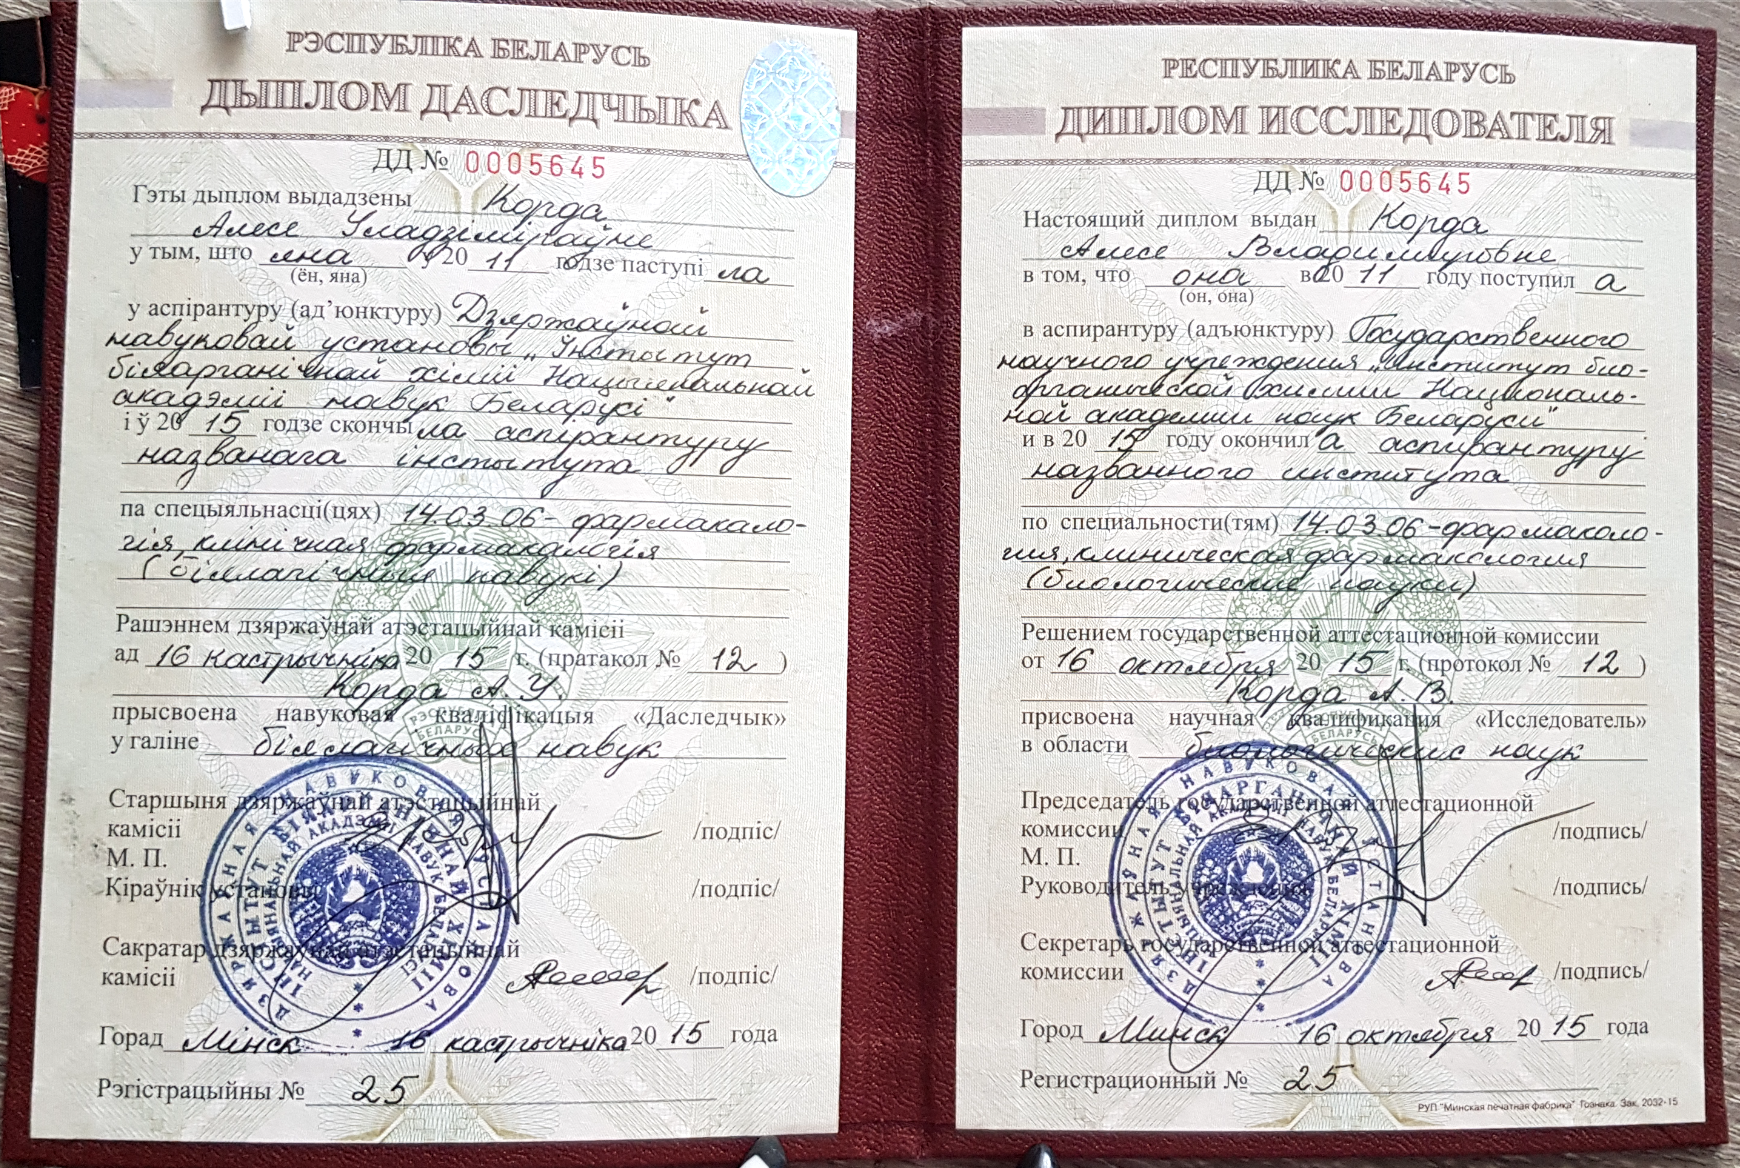 РЭСПУБЛІКА БЕЛАРУСЬ
ДЫПЛОМ ДАСЛЕДЧЫКА
ДД № 0005645
Гэты дыплом выдадзены Корда
Алесе Уладзіміраўне
у тым, што яна у 20 11 годзе паступі ла
(ён, яна)
у аспірантуру (ад’юнктуру) Дзяржаўнай
навуковай установы „Інстытут
біяарганічнай хіміі Нацыянальнай
акадэміі навук Беларусі“
і ў 20 15 годзе скончы ла аспірантуру
названага інстытута
па спецыяльнасці(цях) 14.03.06 - фармакало-
гія, клінічная фармакалогія
(біялагічныя навукі)
Рашэннем дзяржаўнай атэстацыйнай камісіі
ад 16 кастрычніка 20 15 г. (пратакол № 12 )
Корда А. У.
прысвоена навуковая кваліфікацыя «Даследчык»
у галіне біялагічных навук
Старшыня дзяржаўнай атэстацыйнай
камісіі /подпіс/
М. П.
Кіраўнік установы /подпіс/
Сакратар дзяржаўнай атэстацыйнай
камісіі /подпіс/
Горад Мінск 16 кастрычніка 20 15 года
Рэгістрацыйны № 25
ДЗЯРЖАЎНАЯ НАВУКОВАЯ ЎСТАНОВА
ІНСТЫТУТ БІЯАРГАНІЧНАЙ ХІМІІ
НАЦЫЯНАЛЬНАЙ АКАДЭМІІ НАВУК БЕЛАРУСІ
РЭСПУБЛІКА БЕЛАРУСЬ
РЕСПУБЛИКА БЕЛАРУСЬ
ДИПЛОМ ИССЛЕДОВАТЕЛЯ
ДД № 0005645
Настоящий диплом выдан Корда
Алесе Владимировне
в том, что она в 20 11 году поступил а
(он, она)
в аспирантуру (адъюнктуру) Государственного
научного учреждения „Институт био-
органической химии Националь-
ной академии наук Беларуси“
и в 20 15 году окончил а аспирантуру
названного института
по специальности(тям) 14.03.06 - фармаколо-
гия, клиническая фармакология
(биологические науки)
Решением государственной аттестационной комиссии
от 16 октября 20 15 г. (протокол № 12 )
Корда А. В.
присвоена научная квалификация «Исследователь»
в области биологических наук
Председатель государственной аттестационной
комиссии /подпись/
М. П.
Руководитель учреждения /подпись/
Секретарь государственной аттестационной
комиссии /подпись/
Город Минск 16 октября 20 15 года
Регистрационный № 25
РУП "Минская печатная фабрика" Гознака. Зак. 2032-15
ДЗЯРЖАЎНАЯ НАВУКОВАЯ ЎСТАНОВА
ІНСТЫТУТ БІЯАРГАНІЧНАЙ ХІМІІ
НАЦЫЯНАЛЬНАЙ АКАДЭМІІ НАВУК БЕЛАРУСІ